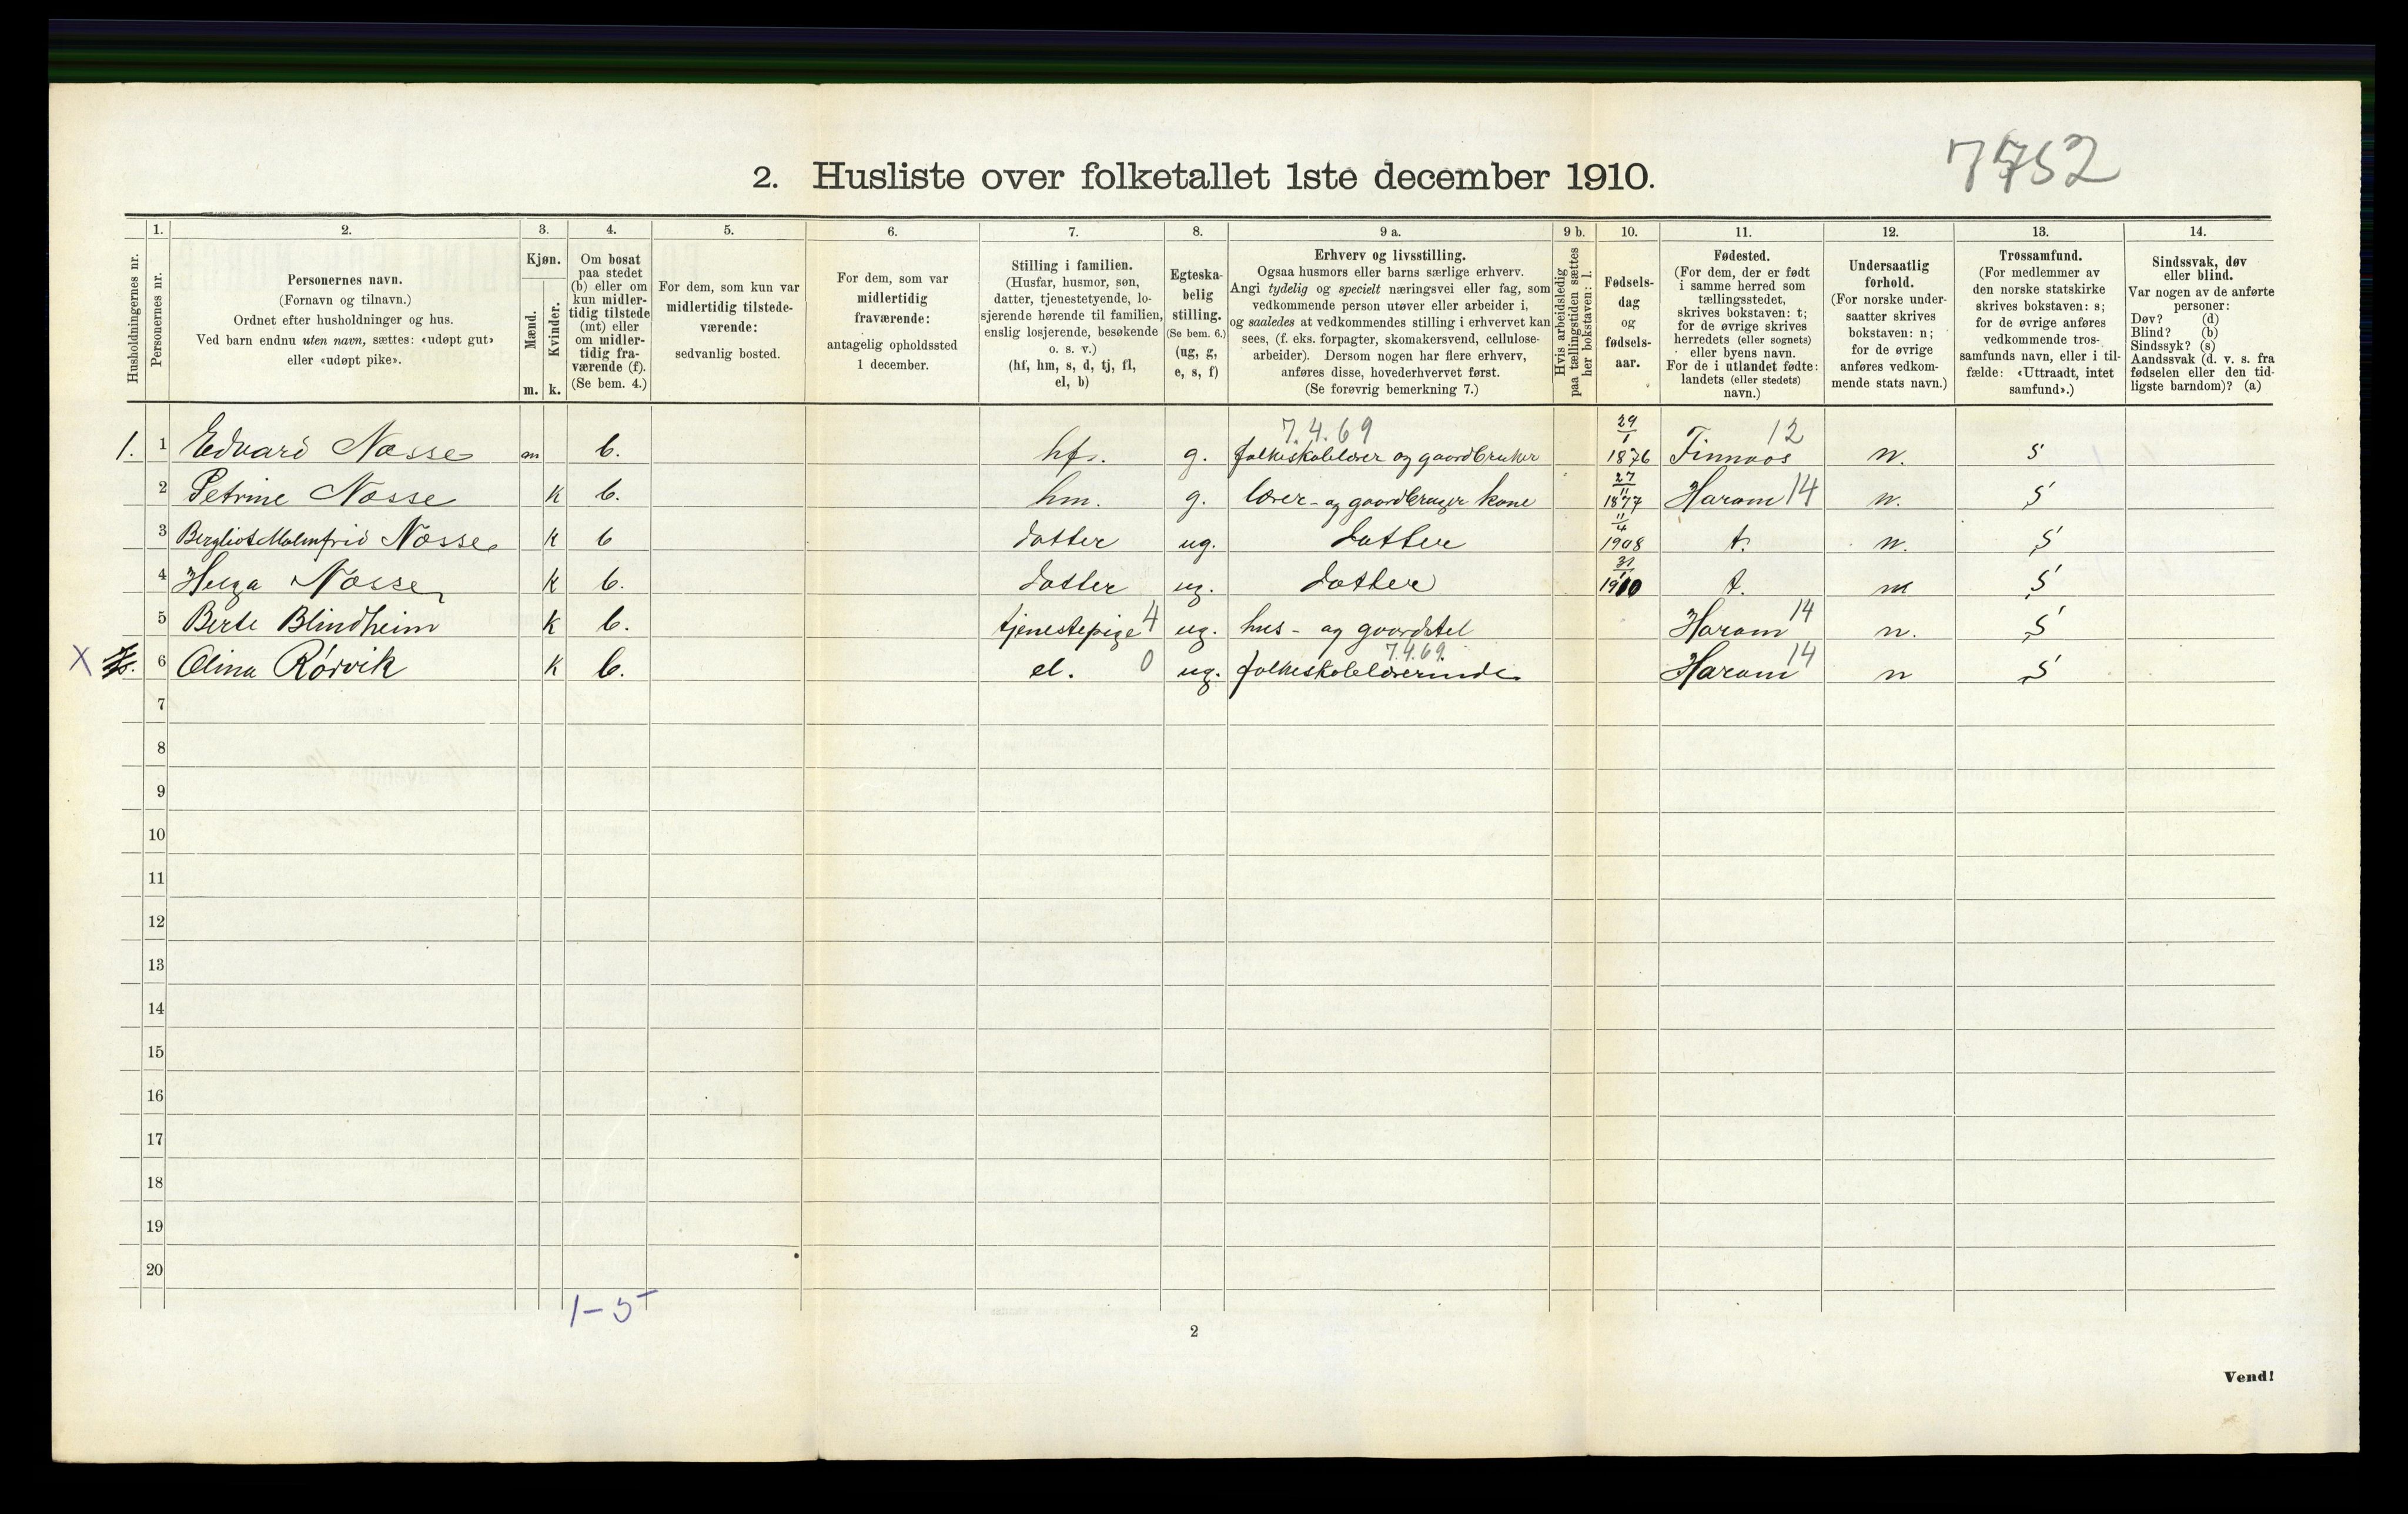 7752
2. Husliste over folketallet 1ste december 1910.
Husholdningernes nr.
1. Personernes nr.
2. Personernes navn. (Fornavn og tilnavn.) Ordnet efter husholdninger og hus. Ved barn endnu uten navn, sættes: «udøpt gut» eller «udøpt pike».
3. Kjøn. Mænd. m. Kvinder. k.
4. Om bosat paa stedet (b) eller om kun midlertidig tilstede (mt) eller om midlertidig fraværende (f). (Se bem. 4.)
5. For dem, som kun var midlertidig tilstedeværende: sedvanlig bosted.
6. For dem, som var midlertidig fraværende: antagelig opholdssted 1 december.
7. Stilling i familien. (Husfar, husmor, søn, datter, tjenestetyende, losjerende hørende til familien, enslig losjerende, besøkende o. s. v.) (hf, hm, s, d, tj, fl, el, b)
8. Egteskabelig stilling. (Se bem. 6.) (ug, g, e, s, f)
9 a. Erhverv og livsstilling. Ogsaa husmors eller barns særlige erhverv. Angi tydelig og specielt næringsvei eller fag, som vedkommende person utøver eller arbeider i, og saaledes at vedkommendes stilling i erhvervet kan sees, (f. eks. forpagter, skomakersvend, cellulosearbeider). Dersom nogen har flere erhverv, anføres disse, hovederhvervet først. (Se forøvrig bemerkning 7.)
9 b. Hvis arbeidsledig paa tællingstiden sættes her bokstaven: l.
10. Fødselsdag og fødselsaar.
11. Fødested. (For dem, der er født i samme herred som tællingsstedet, skrives bokstaven: t; for de øvrige skrives herredets (eller sognets) eller byens navn. For de i utlandet fødte: landets (eller stedets) navn.)
12. Undersaatlig forhold. (For norske undersaatter skrives bokstaven: n; for de øvrige anføres vedkommende stats navn.)
13. Trossamfund. (For medlemmer av den norske statskirke skrives bokstaven: s; for de øvrige anføres vedkommende trossamfunds navn, eller i tilfælde: «Uttraadt, intet samfund».)
14. Sindssvak, døv eller blind. Var nogen av de anførte personer: Døv? (d) Blind? (b) Sindssyk? (s) Aandssvak (d. v. s. fra fødselen eller den tidligste barndom)? (a)
7.4.69
1. 1 Edvard Nosse m b. hf. g. folkeskolelærer og gaardbruker 29/1 1876 Finnøos 12 n. s
2 Petrine Nosse k b. hm. g. lærer- og gaardbruger kone 27/11 1877 Haram 14 n. s
3 Bergliot Malmfrid Nosse k b datter ug. datter 11/4 1908 t. n. s
4 Helga Nosse k b. datter ug. datter 31/1 1910 t. n s
5 Berte Blindheim k b. tjenestepige 4 ug. hus- og gaardstel Haram 14 n. s
7.4.69.
X 6 Olina Rørvik k b. el. 0 ug. folkeskolelærerinde Haram 14 n s
7
8
9
10
11
12
13
14
15
16
17
18
19
20
1-5
2
Vend!